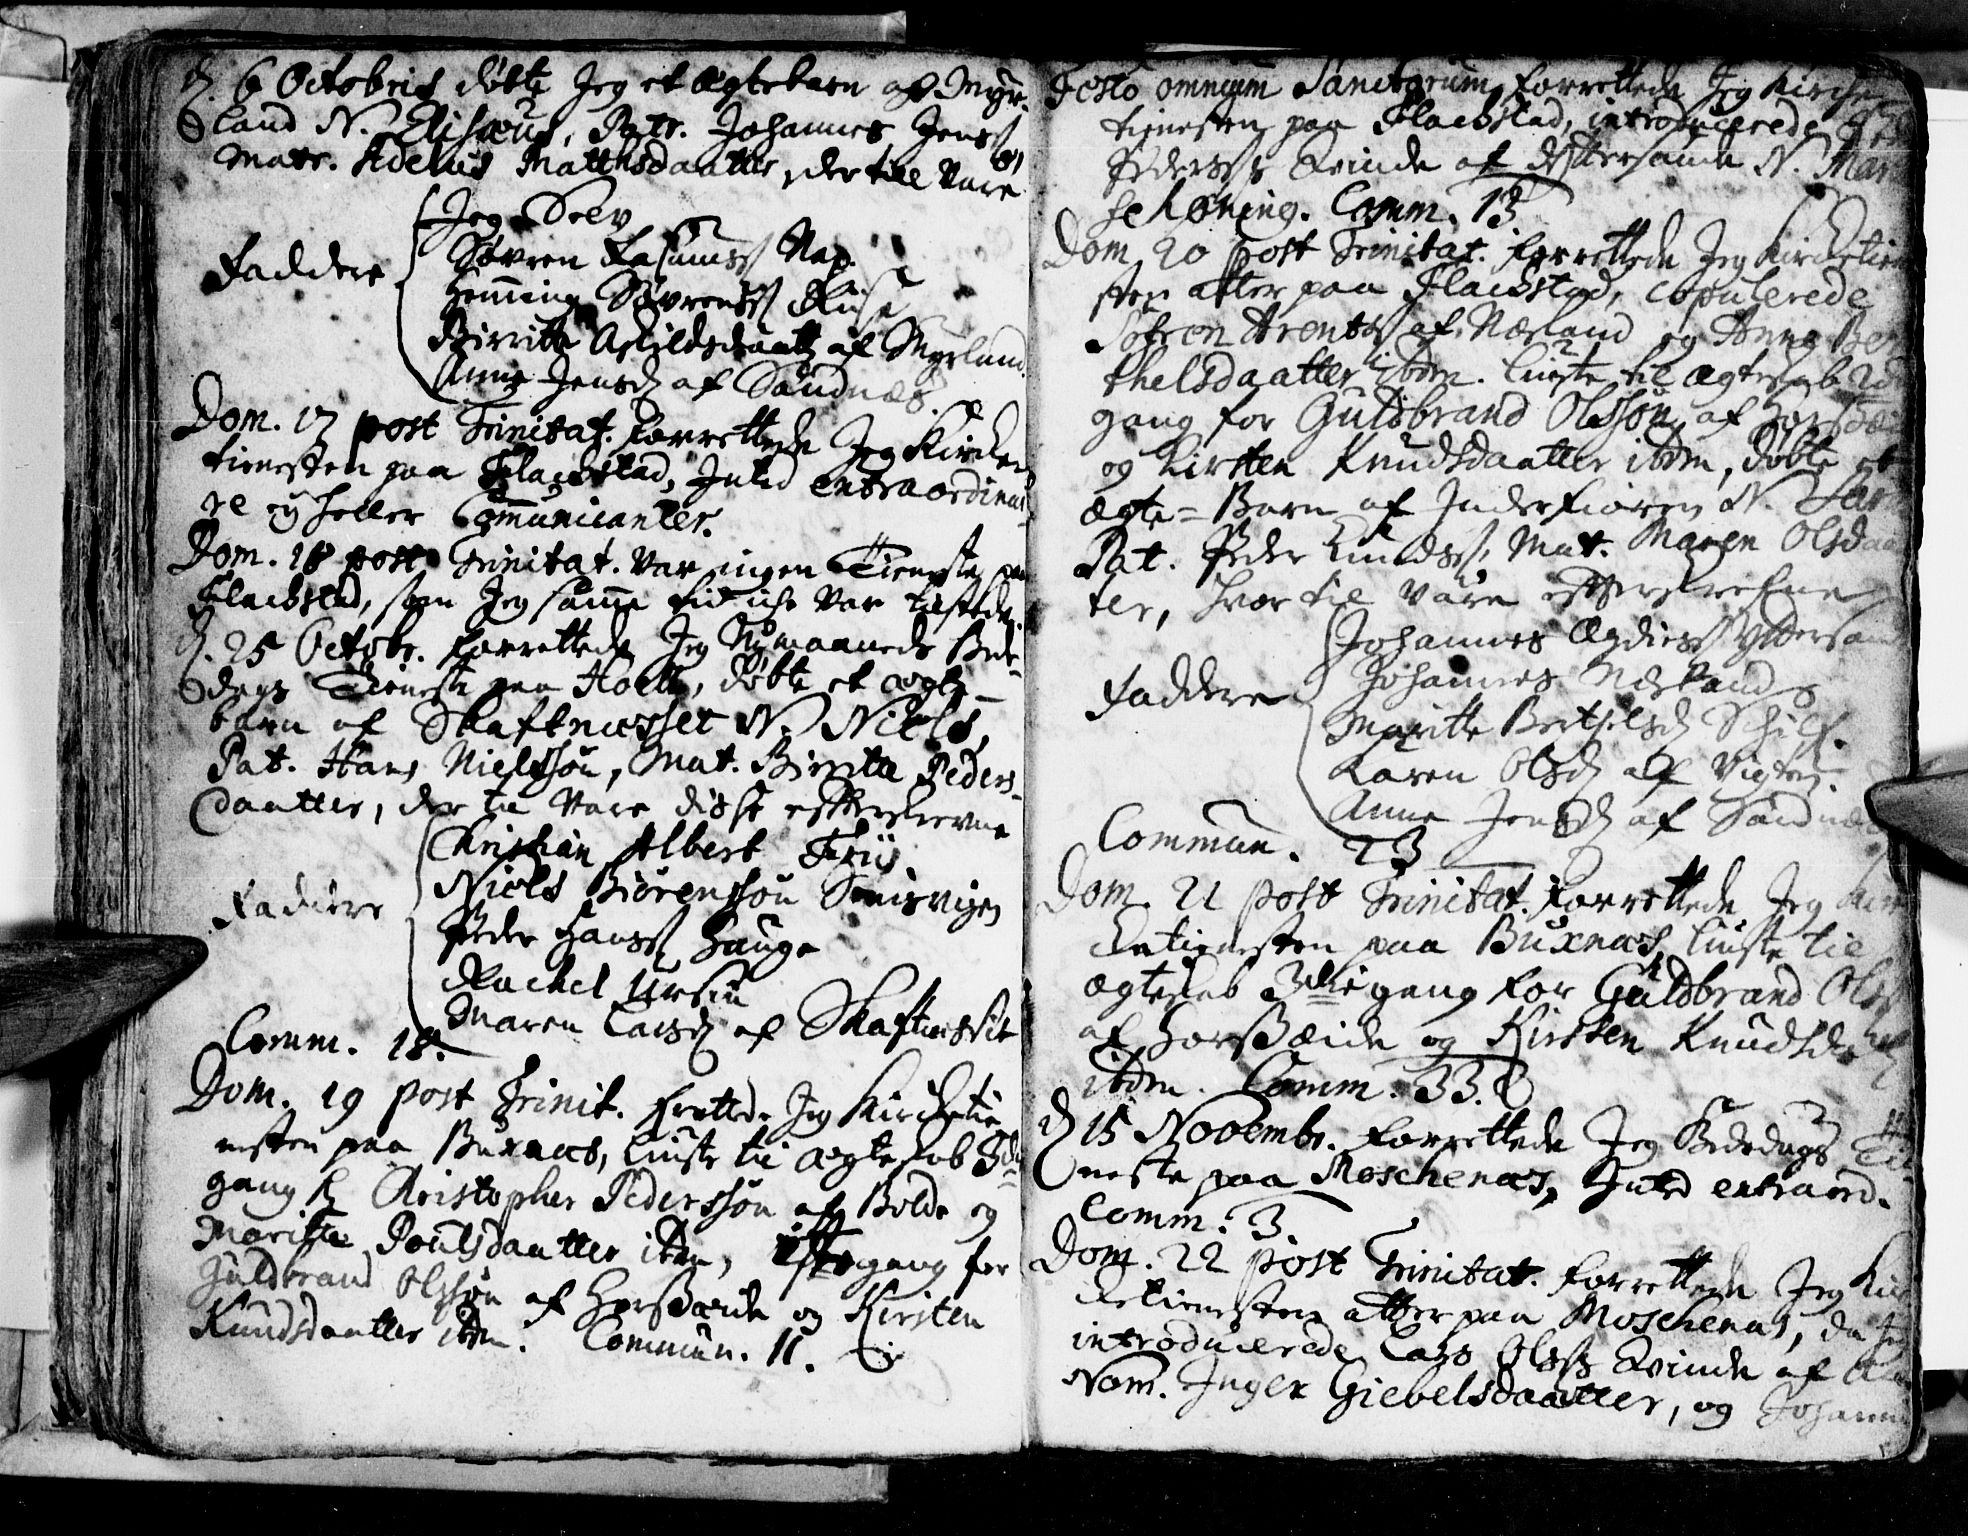 d. 6 Octobris døbte Jeg et Ægtebarn af Myr-
land N. Elisæus, Patr. Johannes Jenss:
Matr. Adelus Matthsdaatter, der till vare
Jeg Selv
Søvren Rasmuss: Nap.
Faddere
Henning Søvrenss:
Birritte Askildsdaatt: af Myrland.
Anne Jensd: af Sandnæs.
Dom. 17 post Trinitat. forrettede Jeg Kircke
tienesten paa Flackstad, Inted extraordinai-
re ej heller Communicanter.
Dom. 18 post Trinitat. var ingen Tieneste paa
Flackstad, som Jeg samme tid icke var tilstede.
d. 25 Octobr. forrettede Jeg Nymaaneds Bede-
dags Tieneste paa Hoell, døbte et ægte-
barn af Skaftnæsset N. Niels,
Pat. Hans Nielssøn, Mat. Birrita Peders-
daatter, der til vare disse effterskrevne
Christian Albert Friis.
Niels Biørenssøn Smisvigen
Faddere
Peder Hanss: Hauge
Rachel Ursin
Maren Larsd: af Skaftnesset
Comm. 18.
Dom. 19 post Trinit. frettede Jeg Kircketie
nesten paa Buxnæs, liuste til ægteskab 3die
gang for Christopher Pederssøn af Bolde og
Maritte Poulsdaatter ibdm, 1ste gang for
Guldbrand Olssøn af Horsszeide og Kirsten
Knudsdaatter ibdm. Commun. 11.
Festo omnium Sanctorum forrettede Jeg Kircke
tienesten paa Flackstad, introducerede
Pederss: Qvinde af Yttersande N. Mar
Schøning. Comm. 13
Dom. 20 post Trinitat. forrettede Jeg Kircketiene
sten atter paa Flackstad, copulerede
Søfren Arentss: af Næsland og Anne Ber
thelsdaatter ibdm. liuste til ægteskab 2den
gang for Guldbrand Olssøn af Horsszeide
og Kirsten Knudsdaatter ibdm, døbte et
ægte-Barn af Inderfioren N. Lars
Pat. Peder Knudss: Mat. Maren Olsdaat
ter, hvor til vare effterskrefne
Johannes Ægdiess: Yttersand
Johannes Næsland
Faddere
Maritte Berthelsd: Schilf.
Karen Olsd: af Vigten
Anne Jensd: af Sandnæs
Commun. 23
Dom. 21 post Trinitat. forrettede Jeg Kir
cketienesten paa Buxnæs, liuste til
ægteskab 3die gang for Guldbrand Olss:
af Horsszeide og Kirsten Knudsda
ibdm. Comm. 33.
d. 15 Novembr. forrettede Jeg Bededags Tie
neste paa Moschenæs, Inted extraord.
Comm. 3.
Dom. 22 post Trinitat. forrettede Jeg Kir
cketienesten atter paa Moschenæs, da Jeg
introducerede Lars Olss: Qvinde af
Nom. Inger Giebelsdaatter, og Johann